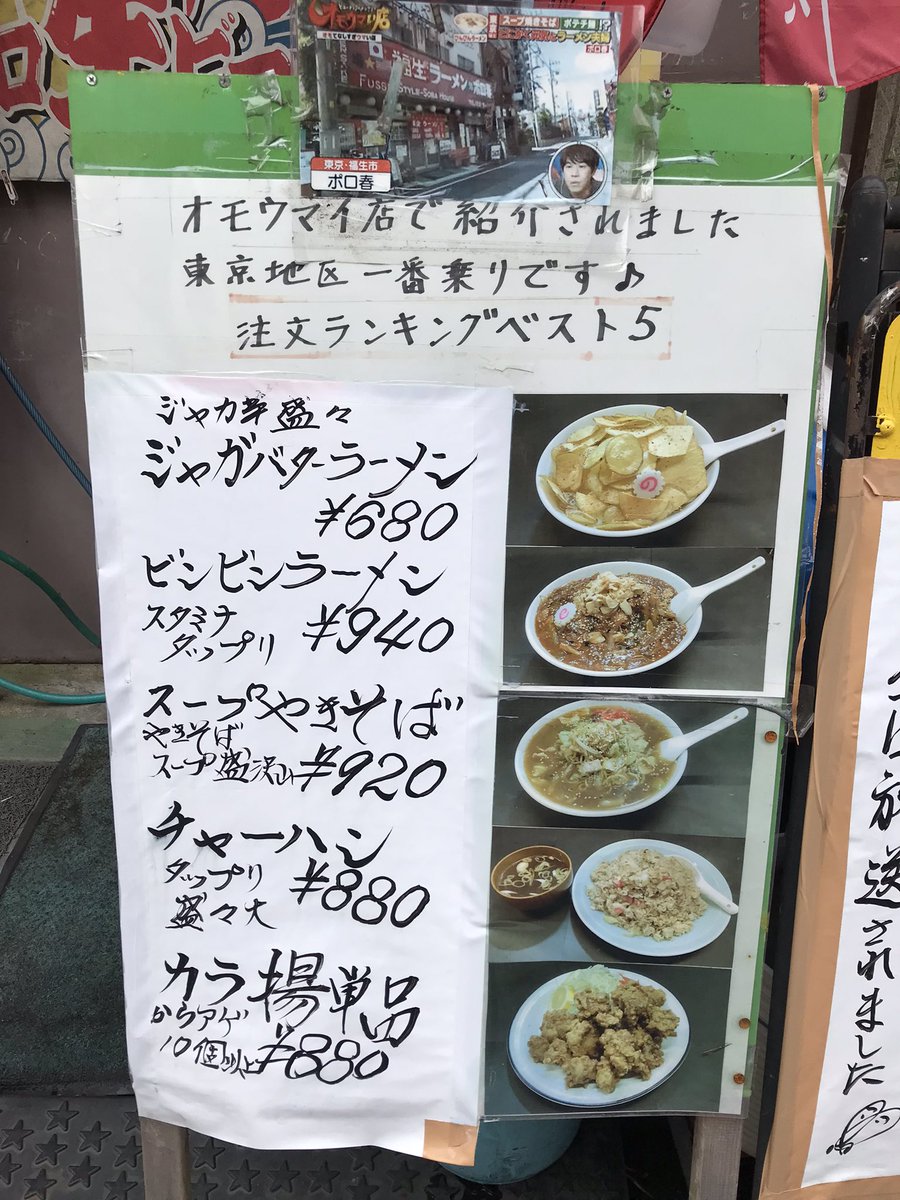 オモウマい店
オモてなしすぎウマい店
スープ焼きそば
ポテチ麺!?
ポロ春
福生ラーメン
東京・福生市
ポロ春
オモウマイ店で紹介されました
東京地区一番乗りです♪
注文ランキングベスト5
盛々
ジャガバターラーメン
¥680
ビンビンラーメン
スタミナ
タップリ
¥940
スープやきそば
やきそば
スープ盛沢山
¥920
チャーハン
タップリ
盛々大
¥880
カラ揚単品
からアゲ
10個以上
¥880
の
放送されました